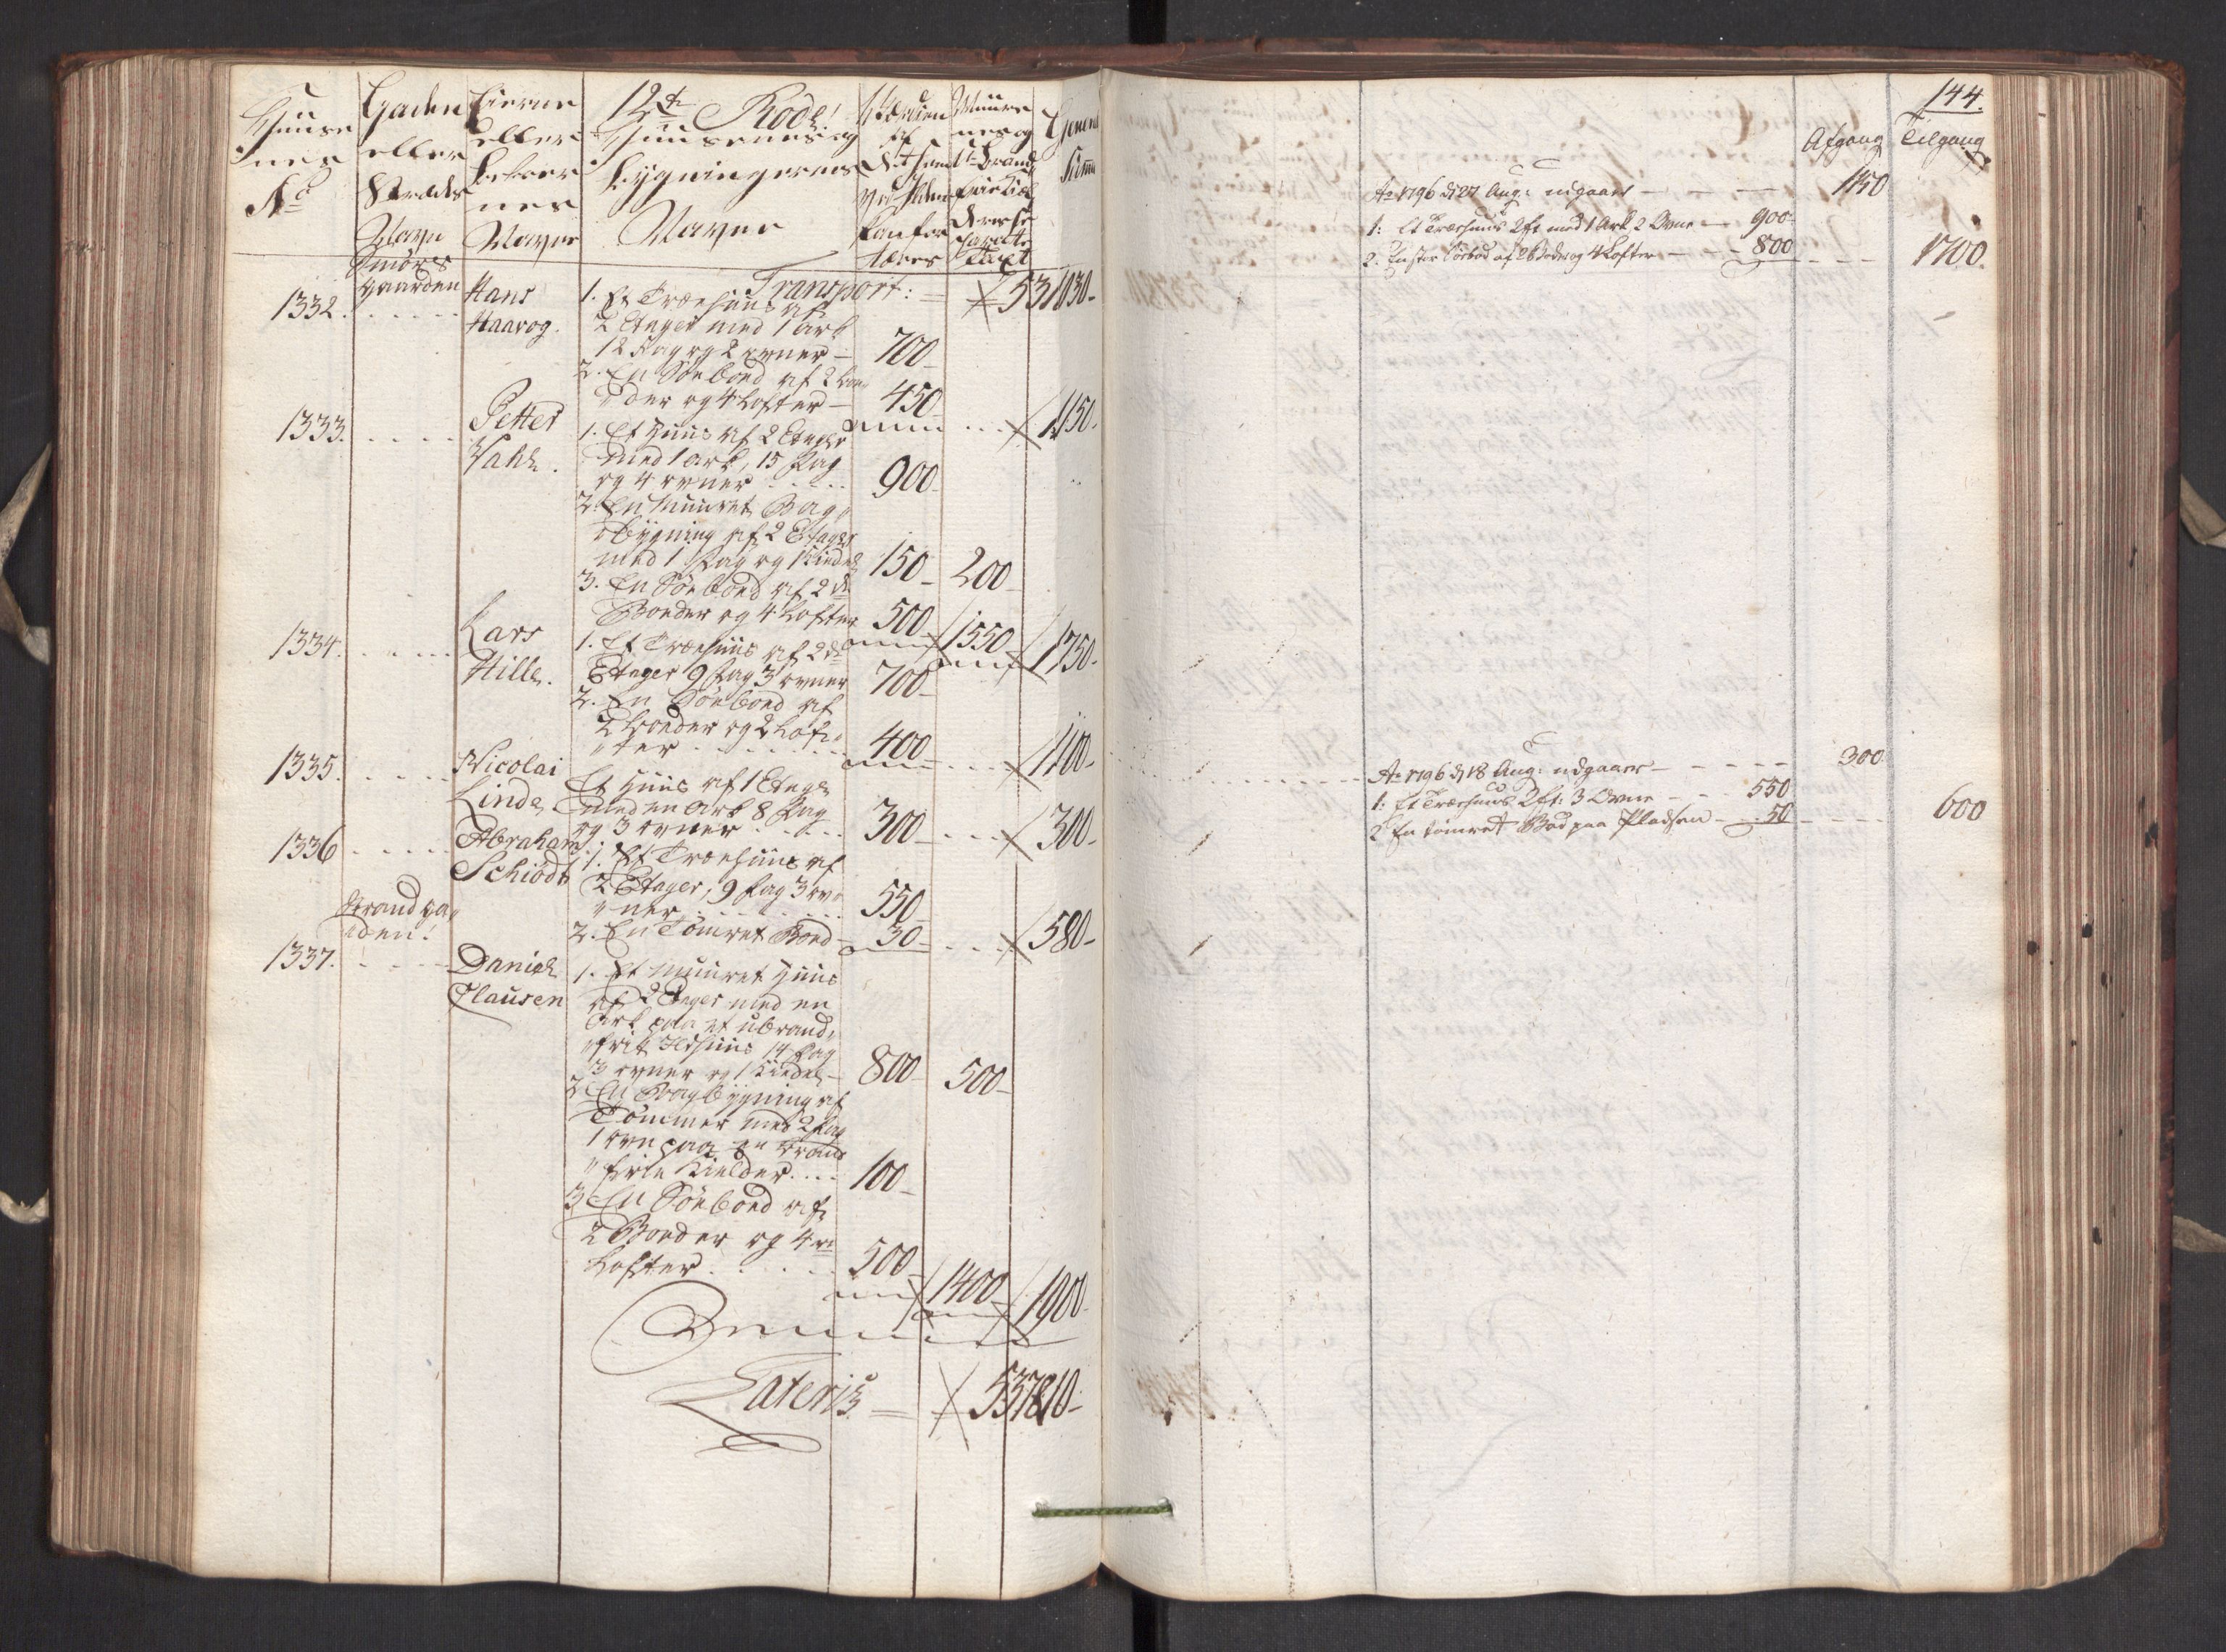 Huuse
nes
No
Gaden
eller
Strædes
Navn
Eierne
eller
beboer
nes
Navne
12te Rode!
Huusenes og
bygningernes
Navne
Værdien
af
Ved Ilden
kan for
tæres
Muure
nes og
Taxt
Summa
Transport: = 531030-
Smørs
gaarden
1332.
Hans
Haavog.
1. Et Træehuus af
2 Etager med 1 Ark
12 Fag og 2 ovner - 700-
2. En Søeboed af 2 boe
der og 4 Lofter - 450- 1150-
1333.
Petter
Vahl.
1. Et Huus af 2 Etager
med 1 Ark, 15 Fag
og 4 ovner 900-
2. En Muuret Bag
bygning af 2 Etager
med 1 Fag og 1 Kielder 150- 200
3. En Søeboed af 2de
Boeder og 4 Lofter 500 1550 1750-
1334.
Lars
Hille.
1. Et Træehuus af 2de
Etager 9 Fag 3 ovner 700-
2. En Søeboed af
2 boeder og 2 Lof
ter 400- 1100-
1335.
Nicolai
Linde
Et Huus af 1 Etage
med en Ark 8 Fag
og 3 ovner 300- 300-
1336
Abraham
Schiødt
1. Et Træehuus af
2 Etager, 9 Fag 3 ov
ner 550
2. En Tømret Boed 30- 580-
Strandga
den!
1337.
Daniel
Clausen
1. Et Muuret Huus
af 2 Etager med en
Ark paa et ubrand
frit Ildhuus 14 Fag
3 ovner og 1 Kielder 800- 500-
2 En Bagbygning af
Tømmer med 2 Fag
1 ovn paa en brand
frie Kielder 100-
3 En Søeboed af
2 Boeder og 4re
Lofter 500 1400 1900-
Lateris = 537810-
144.
Afgang Tilgang
Ao 1796 d 27 Aug: udgaaer 1150
1: Et Træehuus 2 Et med 1 Ark 2 Ovne - 900-
2. En stor Søebod af 2 Boder og 4 Lofter - 800 1700
Ao 1796 d 18 Aug: udgaaer 300
1: Et Træehuus 2 Et: 3 Ovne - 550
2 En tømret Bod paa Pladsen - 50 600